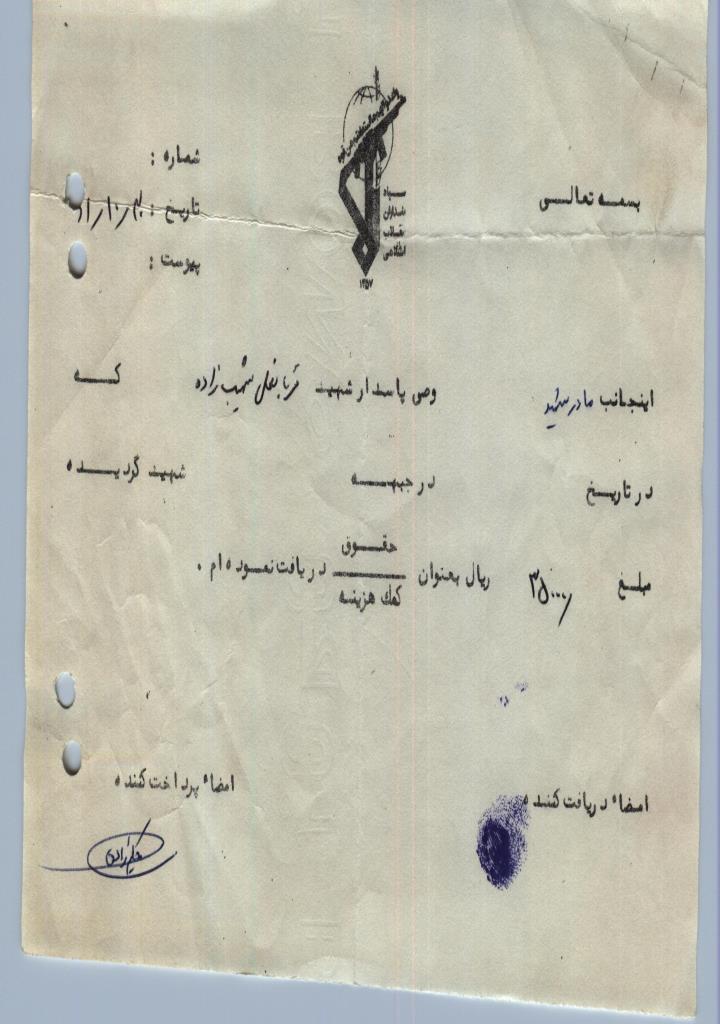 بسمه تعالی
شماره :
تاریخ : ۳۰/۱۰/۶۱
پیوست :
سپاه
پاسداران
انقلاب
اسلامی
۱۳۵۷
اینجانب مادر شهید وصی پاسدار شهید قربانعلی شعیب زاده که
در تاریخ در جبهه شهید گردیده
مبلغ ۳۵۰۰۰ ریال بعنوان حقوق / کمک هزینه دریافت نموده ام .
امضاء دریافت کننده امضاء پرداخت کننده